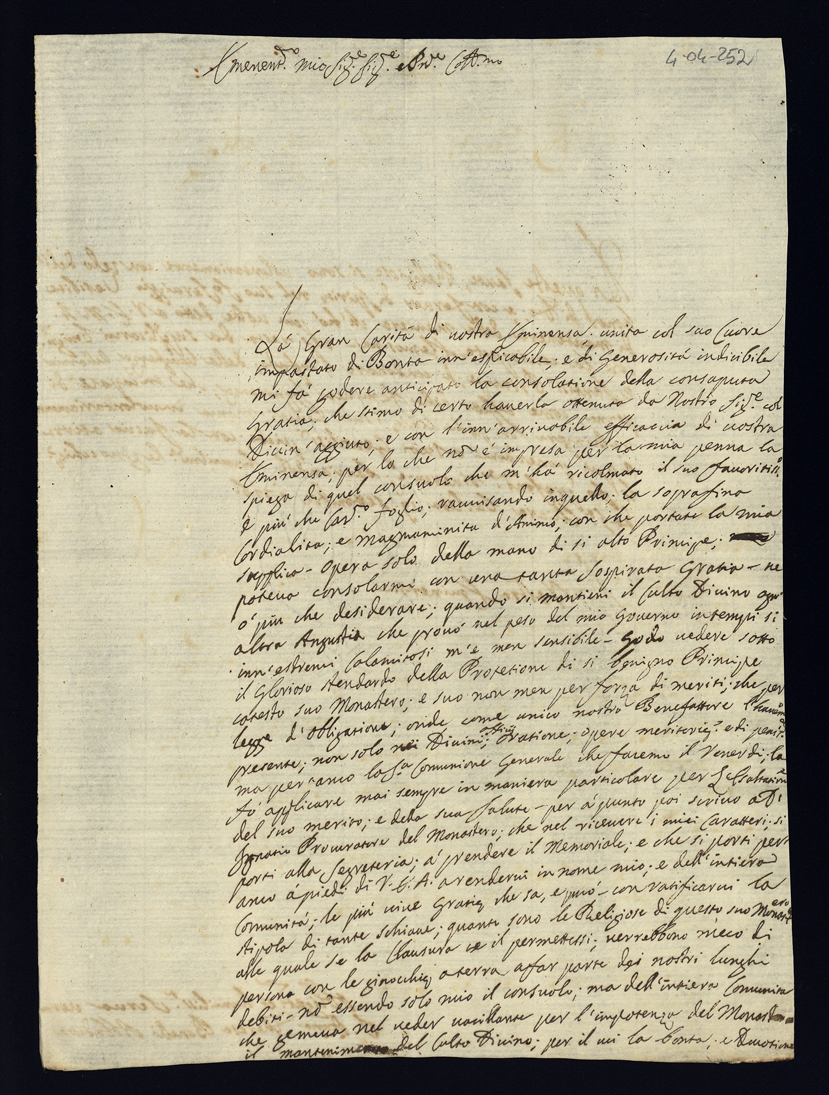 4-04-252
Eminent.mo mio Sig.re Sig.re e Prõe Coll.mo
La Gran Carità di vostra Eminensa, unita col suo Cuore
impastato di Bontà inn'esplicabile, e di Generosità indicibile
mi fà godere anticipato la consolatione della consaputa
Gratia, che stimo di certo haverla ottenuta da Nostro Sig.re col
Divin' aggiuto, e con l'inn'arrivabile efficacia di vostra
Eminensa, per lo che nõ è impresa per la mia penna la
spiega di quel consuolo che m'hà ricolmato il suo favoritiss.
e più che Car.mo foglio, ravvisando inquello la soprafina
Cordialità, e magnaminità d'Animo, con che portate la mia
supplica - Opera solo della mano di si alto Principe,
poteva consolarmi con una tanta sospirata Gratia - ne
ò più che desiderare, quando si mantieni il Culto Divino ogn'
altra Angustia che provò nel peso del mio Governo intempi si
inn'estremi Calamitosi m'è men sensibile - Godo vedere sotto
il Glorioso stendardo della Protetione di si Benigno Principe
cotesto suo Monastero, e suo non men per forza di meriti, che per
legge d'Obligatione, onde come unico nostro Benefattore l'havem
presente, non solo nei Divini Ofitii, Oratione, opere meritorie, e di penit.
ma per anco la S.a Comunione Generale che faremo il Venerdi, la
fò applicare mai sempre in maniera particolare per l'essaltatione
del suo merito, e della sua Salute - per a punto poi scrivo a D.
Ignatio Procuratore del Monastero, che nel ricevere i miei Caratteri, si
porti alla Segreteria, a prendere il Memoriale, e che si porti per
anco à piedi di V. E. A. a rendervi in nome mio, e dell'intiera
Comunità, le più vive Gratie che sa, e può - con ratificarvi la
stipola di tante schiave, quante sono le Religiose di questo suo Monast.ero
alle quale se la Clausura ce il permettessi, verrebbono meco di
persona con le ginocchia a terra a far parte dei nostri lunghi
debiti - nõ essendo solo mio il consuolo, ma dell'intiera Comunità
che gemeva nel veder vacillante per l'impotenza del Monast.
il mantenimento del Culto Divino, per il cui la bontà, e Divotione